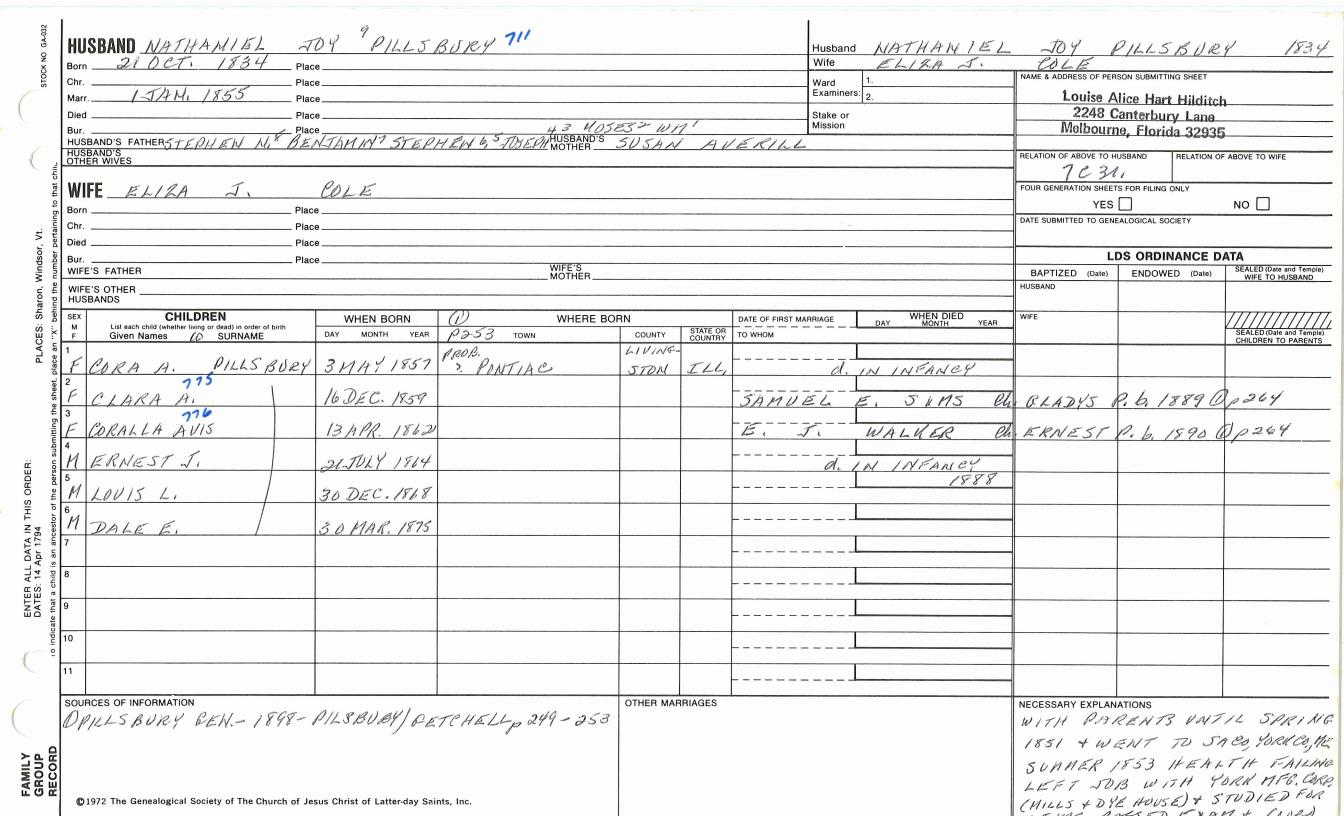 STOCK NO GA-032
PLACES: Sharon, Windsor, Vt.
ENTER ALL DATA IN THIS ORDER:
DATES: 14 Apr 1794
to indicate that a child is an ancestor of the person submitting the sheet, place an "X" behind the number pertaining to that child.
FAMILY GROUP RECORD
HUSBAND NATHANIEL JOY 9 PILLSBURY 711
Born 21 OCT. 1834 Place
Chr. Place
Marr. 1 JAN. 1855 Place
Died Place
Bur. Place
HUSBAND'S FATHER STEPHEN N.8 BENJAMIN7 STEPHEN 6, 5 JOSEPH 4 3 MOSES2 WM1 HUSBAND'S MOTHER SUSAN AVERILL
HUSBAND'S OTHER WIVES
Husband NATHANIEL JOY PILLSBURY 1834
Wife ELIZA J. COLE
Ward Examiners: 1.
2.
Stake or Mission
NAME & ADDRESS OF PERSON SUBMITTING SHEET
Louise Alice Hart Hilditch
2248 Canterbury Lane
Melbourne, Florida 32935
RELATION OF ABOVE TO HUSBAND RELATION OF ABOVE TO WIFE
7C3R.
FOUR GENERATION SHEETS FOR FILING ONLY
YES NO
DATE SUBMITTED TO GENEALOGICAL SOCIETY
WIFE ELIZA J. COLE
Born Place
Chr. Place
Died Place
Bur. Place
WIFE'S FATHER WIFE'S MOTHER
WIFE'S OTHER HUSBANDS
LDS ORDINANCE DATA
BAPTIZED (Date) ENDOWED (Date) SEALED (Date and Temple) WIFE TO HUSBAND
HUSBAND
WIFE
SEALED (Date and Temple) CHILDREN TO PARENTS
SEX M F CHILDREN WHEN BORN (1) WHERE BORN DATE OF FIRST MARRIAGE WHEN DIED
List each child (whether living or dead) in order of birth
Given Names 10 SURNAME DAY MONTH YEAR P253 TOWN COUNTY STATE OR COUNTRY TO WHOM DAY MONTH YEAR
1 F CORA A. PILLSBURY 3 MAY 1857 PROB. PONTIAC LIVING-STON ILL, d. IN INFANCY
775
2 F CLARA A. 16 DEC. 1859 SAMUEL E. SIMS Ch. GLADYS P. b. 1889 (1) p264
776
3 F CORALLA AVIS 13 APR. 1862 E. J. WALKER Ch. ERNEST P. b. 1890 (1) p264
4 M ERNEST J. 21 JULY 1864 d. IN INFANCY
5 M LOUIS L. 30 DEC. 1868 1888
6 M DALE E. 30 MAR. 1875
7
8
9
10
11
SOURCES OF INFORMATION
(1) PILLSBURY GEN.- 1898- PILSBURY/GETCHELL p 249-253
OTHER MARRIAGES
NECESSARY EXPLANATIONS
WITH PARENTS UNTIL SPRING
1851 & WENT TO SACO, YORK CO, ME
SUMMER 1853 HEALTH FAILING
LEFT JOB WITH YORK MFG. CORP.
(MILLS & DYE HOUSE) & STUDIED FOR
©1972 The Genealogical Society of The Church of Jesus Christ of Latter-day Saints, Inc.